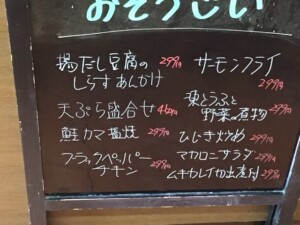 おそうざい
揚だし豆腐の 299円
しらすあんかけ
天ぷら盛合せ 450円
鮭カマ塩焼 299円
ブラックペッパー
チキン 299円
サーモンフライ
299円
凍とうふと
野菜の煮物 299円
ひじき炒め 299円
マカロニサラダ 299円
ムキカレイ切出煮付 299円